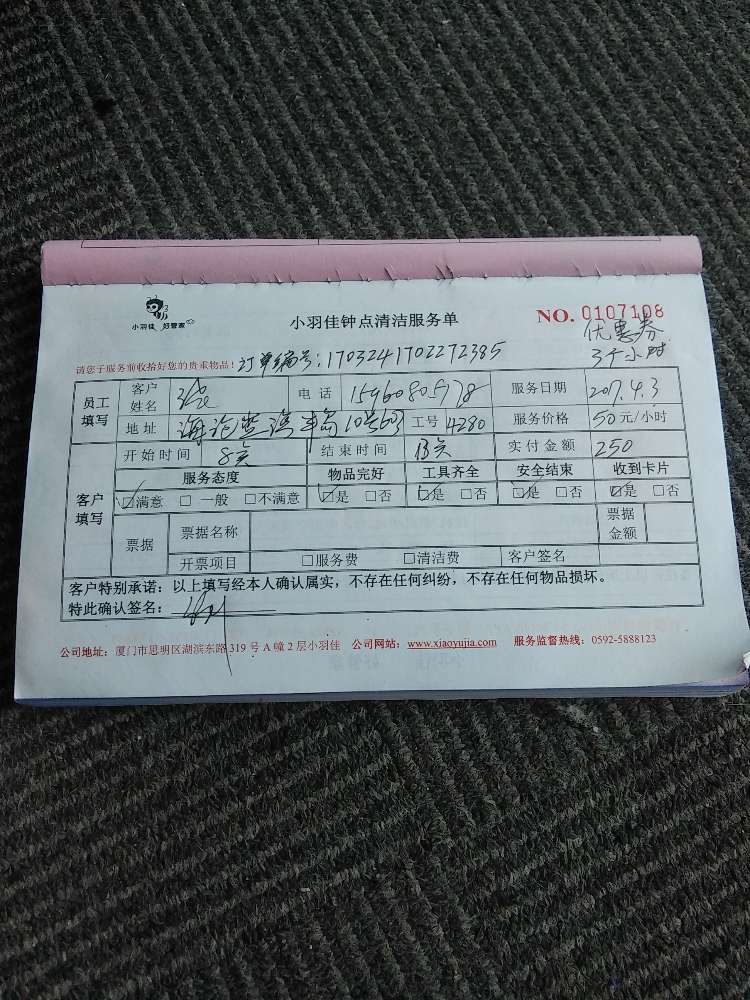 小羽佳 好管家
小羽佳钟点清洁服务单
NO. 0107108
优惠券
3个小时
请您于服务前收拾好您的贵重物品！ 订单编号：1703241702272385
员工填写 客户姓名 电话 服务日期 2017.4.3
地址 半岛10号603 工号 4280 服务价格 50元/小时
客户填写 开始时间 8点 结束时间 13点 实付金额 250
服务态度 物品完好 工具齐全 安全结束 收到卡片
☑满意 □一般 □不满意 ☑是 □否 ☑是 □否 ☑是 □否 ☑是 □否
票据 票据名称 票据金额
开票项目 □服务费 □清洁费 客户签名
客户特别承诺：以上填写经本人确认属实，不存在任何纠纷，不存在任何物品损坏。
特此确认签名：
公司地址：厦门市思明区湖滨东路319号A幢2层小羽佳 公司网站：www.xiaoyujia.com 服务监督热线：0592-5888123